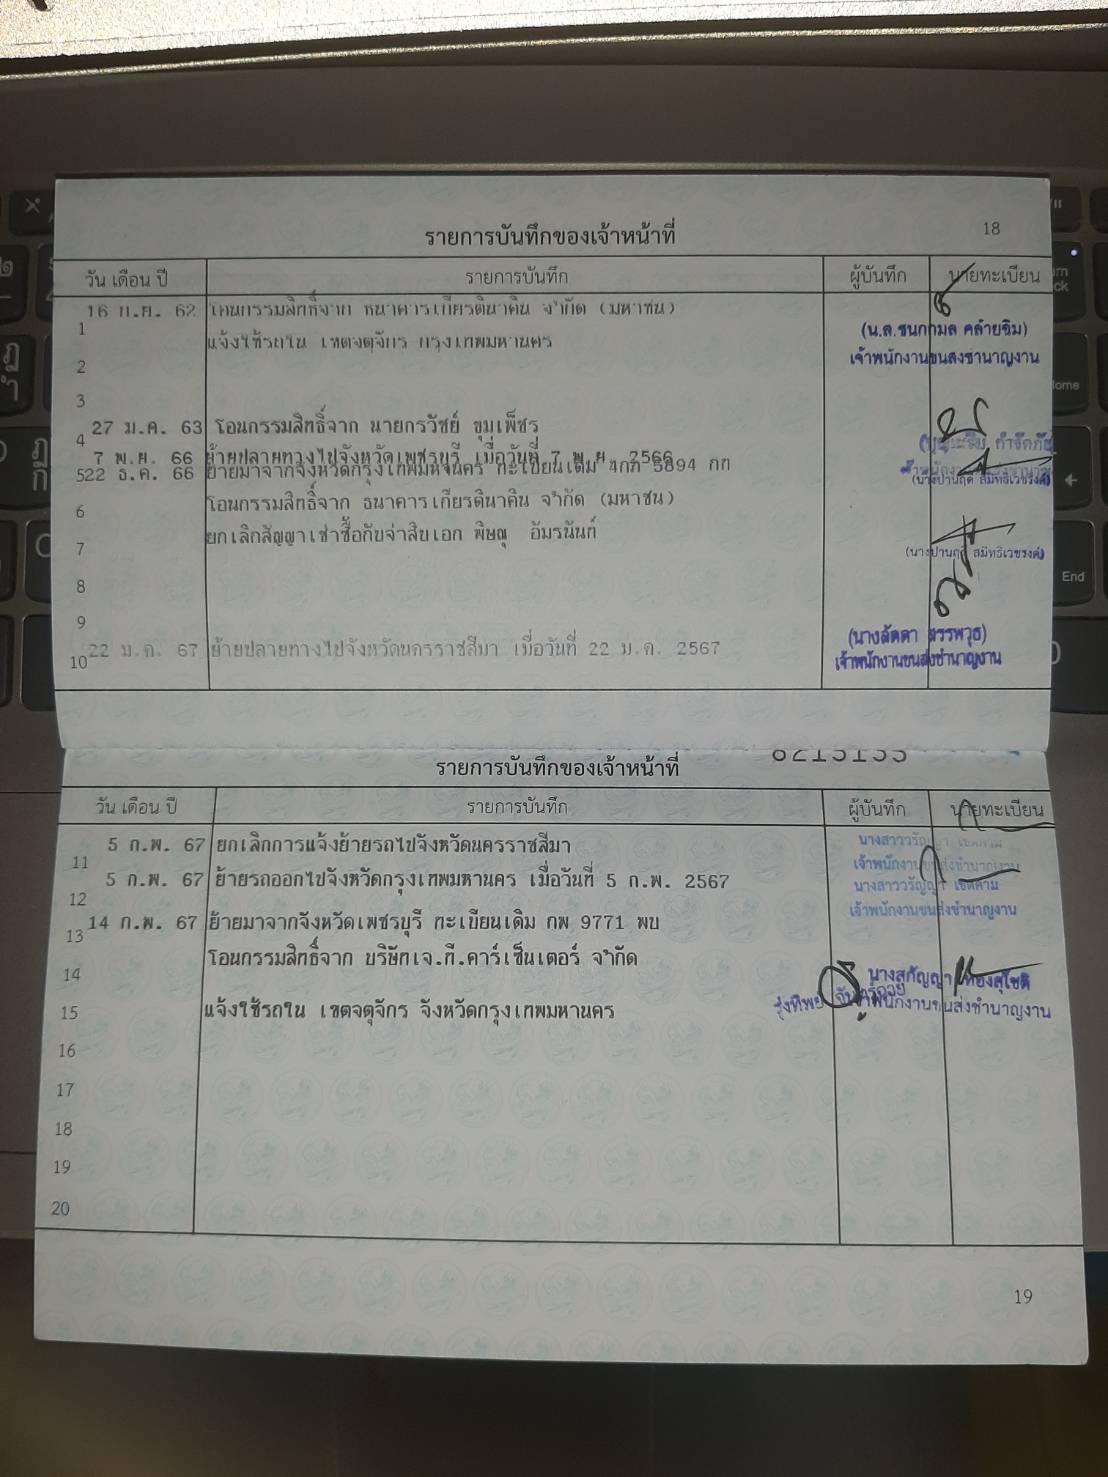 18
รายการบันทึกของเจ้าหน้าที่
วัน เดือน ปี รายการบันทึก ผู้บันทึก นายทะเบียน
16 ก.ย. 62 โอนกรรมสิทธิ์จาก ธนาคารเกียรตินาคิน จำกัด (มหาชน)
1 (น.ส.ชนกกมล คล้ายฉิม)
แจ้งใช้รถใน เขตจตุจักร กรุงเทพมหานคร
2 เจ้าพนักงานขนส่งชำนาญงาน
3
27 ม.ค. 63 โอนกรรมสิทธิ์จาก นายกรวัชย์ ขุมเพ็ชร
4
7 พ.ย. 66 ย้ายปลายทางไปจังหวัดเพชรบุรี เมื่อวันที่ 7 พ.ย. 2566
5 22 ธ.ค. 66 ย้ายมาจากจังหวัดกรุงเทพมหานคร ทะเบียนเดิม 4กก 5894 กท
(นางปานฤดี สมิทธิเวชรงค์)
6 โอนกรรมสิทธิ์จาก ธนาคารเกียรตินาคิน จำกัด (มหาชน)
7 ยกเลิกสัญญาเช่าซื้อกับจ่าสิบเอก พิษณุ อัมรนันท์
(นางปานฤดี สมิทธิเวชรงค์)
8
9
(นางลัดดา สรรพวุธ)
10 22 ม.ค. 67 ย้ายปลายทางไปจังหวัดนครราชสีมา เมื่อวันที่ 22 ม.ค. 2567
เจ้าพนักงานขนส่งชำนาญงาน
รายการบันทึกของเจ้าหน้าที่
วัน เดือน ปี รายการบันทึก ผู้บันทึก นายทะเบียน
5 ก.พ. 67 ยกเลิกการแจ้งย้ายรถไปจังหวัดนครราชสีมา
11 เจ้าพนักงานขนส่งชำนาญงาน
5 ก.พ. 67 ย้ายรถออกไปจังหวัดกรุงเทพมหานคร เมื่อวันที่ 5 ก.พ. 2567
12 เจ้าพนักงานขนส่งชำนาญงาน
13 14 ก.พ. 67 ย้ายมาจากจังหวัดเพชรบุรี ทะเบียนเดิม กพ 9771 พบ
14 โอนกรรมสิทธิ์จาก บริษัทเจ.ที.คาร์เซ็นเตอร์ จำกัด
นางสุกัญญา ทองสุโชติ
15 แจ้งใช้รถใน เขตจตุจักร จังหวัดกรุงเทพมหานคร
รุ่งทิพย์ เจ้าพนักงานขนส่งชำนาญงาน
16
17
18
19
20
19